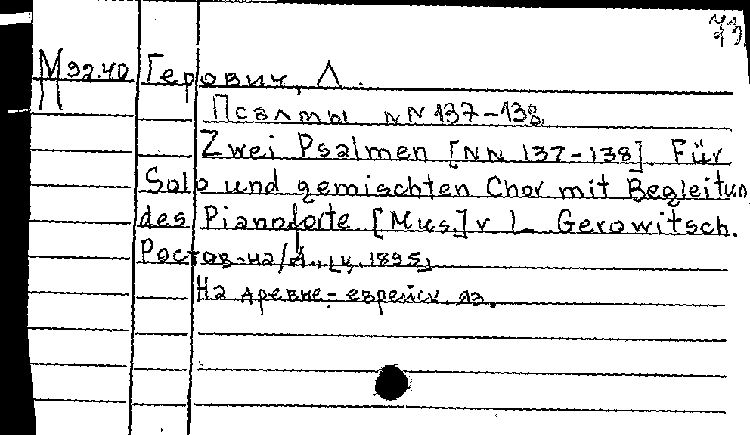 М 92.40 Герович, Л.
Псалмы NN 137-138
Zwei Psalmen [NN 137-138] Für
Solo und gemischten Chor mit Begleitun
des Pianoforte [Mus.] v L Gerowitsch.
Ростов-на/Д., 1895
На древне-еврейск. яз.